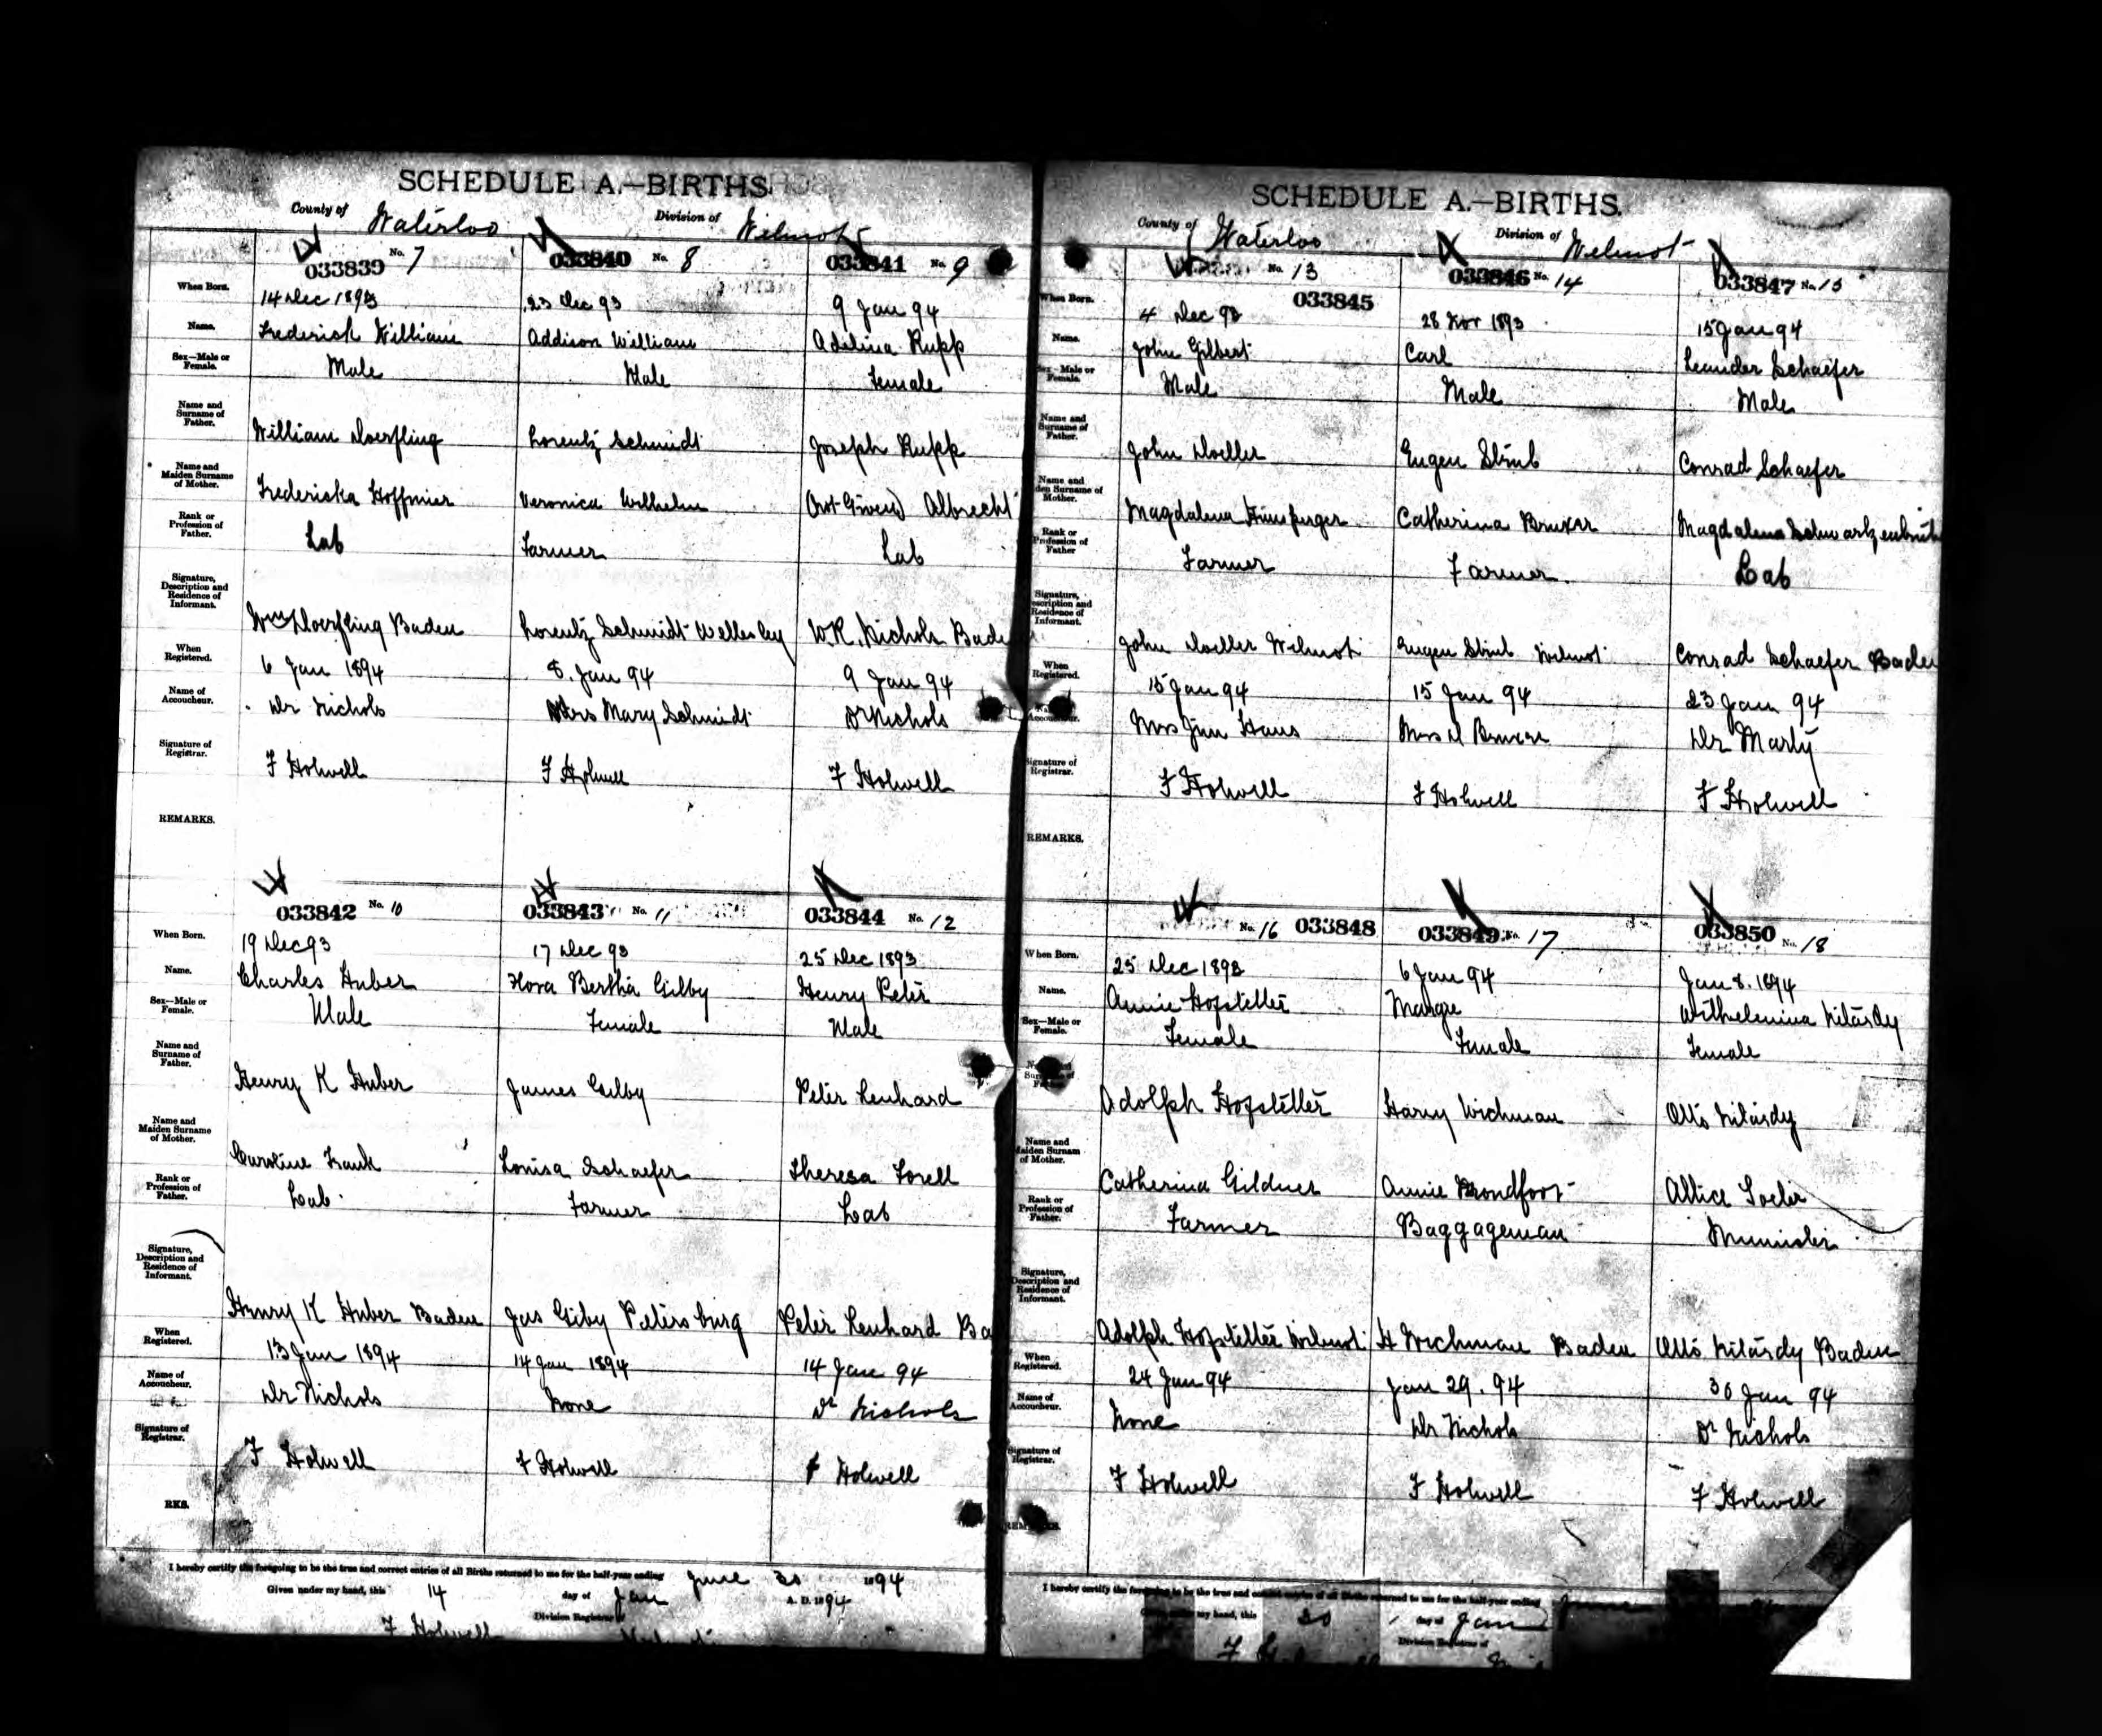 SCHEDULE A.—BIRTHS.
County of Waterloo Division of Wilmot
033839 No. 7 033840 No. 8 033841 No. 9
When Born. 14 Dec 1893 23 Dec 93 9 Jan 94
Name. Frederick William Addison William Adelina Rupp
Sex—Male or Female. Male Male Female
Name and Surname of Father. William Doerfling Lorentz Schmidt Joseph Rupp
Name and Maiden Surname of Mother. Fredericka Hoffmier Veronica Wilhelm (Not Given) Albrecht
Rank or Profession of Father. Lab Farmer Lab
Signature, Description and Residence of Informant. Wm Doerfling Baden Lorentz Schmidt Wellesley W.R. Nichols
When Registered. 6 Jan 1894 8. Jan 94 9 Jan 94
Name of Accoucheur. Dr Nichols Mrs Mary Schmidt Dr Nichols
Signature of Registrar. F Holwell F Holwell F Holwell
REMARKS.
033842 No. 10 033843 No. 11 033844 No. 12
When Born. 19 Dec 93 17 Dec 93 25 Dec 1893
Name. Charles Huber Flora Bertha Gilby Henry Peter
Sex—Male or Female. Male Female Male
Name and Surname of Father. Henry K Huber James Gilby Peter Lenhard
Name and Maiden Surname of Mother. Caroline Frank Louisa Schaefer Theresa
Rank or Profession of Father. Lab. Farmer Lab
Signature, Description and Residence of Informant. Henry K Huber Baden Jas Giby Petersburg Peter Lenhard Ba
When Registered. 13 Jan 1894 14 Jan 1894 14 Jan 94
Name of Accoucheur. Dr Nichols None Dr Nichols
Signature of Registrar. F Holwell F Holwell F Holwell
RKS.
I hereby certify the foregoing to be the true and correct entries of all Births returned to me for the half-year ending June 30 1894
Given under my hand, this 14 day of Jan A. D. 1894
F Holwell Division Registrar of
SCHEDULE A.—BIRTHS.
County of Waterloo Division of Wilmot
No. 13 033845 033846 No. 14 033847 No. 15
When Born. 4 Dec 93 28 Nov 1893 15 Jan 94
Name. John Gilbert Carl Leander Schaefer
Sex—Male or Female. Male Male Male
Name and Surname of Father. John Doeller Eugen Conrad Schaefer
Name and Maiden Surname of Mother. Magdalena Catherina Magdalena
Rank or Profession of Father Farmer Farmer. Lab
Signature, Description and Residence of Informant. John Doeller Wilmot Eugen Wilmot Conrad Schaefer Baden
When Registered. 15 Jan 94 15 Jan 94 23 Jan 94
Accoucheur. Mrs Haus Mrs Dr Marty
Signature of Registrar. F Holwell F Holwell F Holwell
REMARKS.
No. 16 033848 033849 No. 17 033850 No. 18
When Born. 25 Dec 1893 6 Jan 94 Jan 8. 1894
Name. Annie Hofstetter Margie Wilhelmina Nitardy
Sex—Male or Female. Female Female Female
Name and Surname of Father. Adolph Hofstetter Harry Wichman Otto Nitardy
Name and Maiden Surnam of Mother. Catherina Gildner Annie Brondfoot Allice
Rank or Profession of Father. Farmer Baggageman Minister
Signature, Description and Residence of Informant. Adolph Hofstetter Wilmot H Wichman Baden Otto Nitardy Baden
When Registered. 24 Jan 94 Jan 29. 94 30 Jan 94
Name of Accoucheur. None Dr Nichols Dr Nichols
Signature of Registrar. F Holwell F Holwell F Holwell
I hereby certify the foregoing to be the true and correct entries of all Births returned to me for the half-year ending
my hand, this 30 day of Jan
Division Registrar of